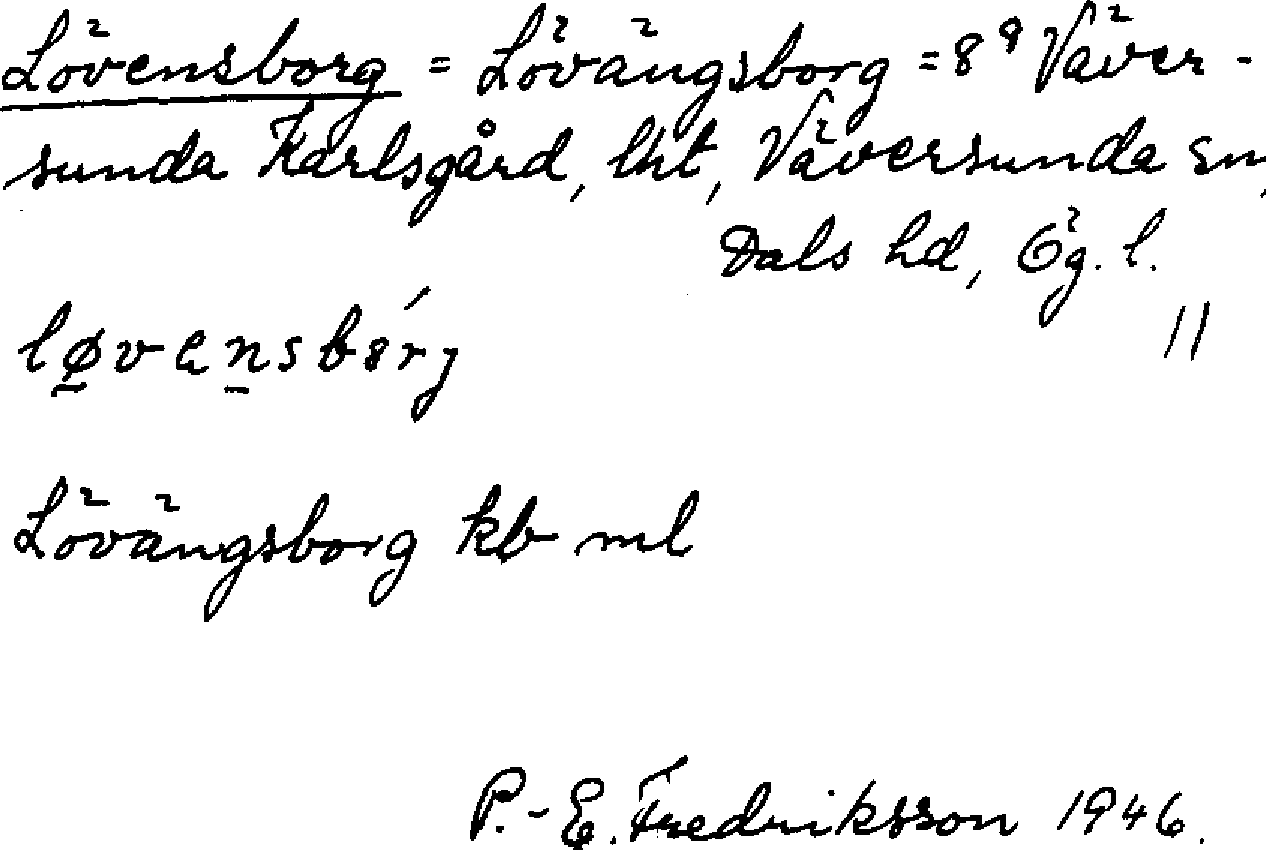 Lövensborg = Lövängsborg = 8⁹ Väver-
sunda Karlsgård, lht, Väversunda sn,
Dals hd, Ög. l.
11
Lövängsborg kb ml
P.-E. Fredriksson 1946.